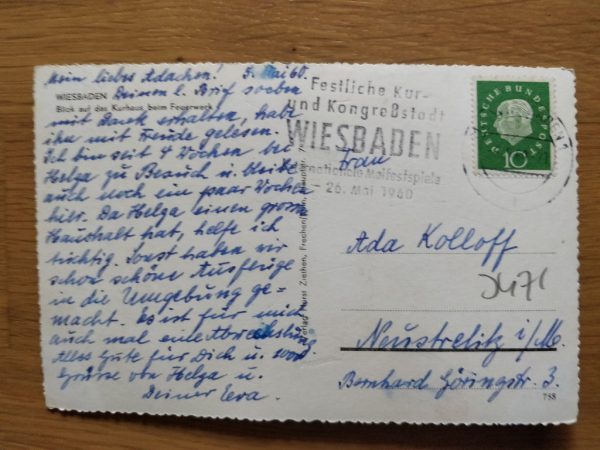 Mein liebes Adachen! 5. Mai 60.
WIESBADEN Deinen l. Brief soeben
Blick auf das Kurhaus beim Feuerwerk
mit Dank erhalten, habe
ihn mit Freude gelesen.
Ich bin seit 4 Wochen bei
Helga zu Besuch u. bleibe
auch noch ein paar Wochen
hier. Da Helga einen grossen
Haushalt hat, helfe ich
tüchtig. Sonst haben wir
schon schöne Ausflüge
in die Umgebung ge-
macht. Es ist für mich
auch mal eine Abwechslung
Alles Gute für Dich u.
Grüsse von Helga u.
Deiner
Verlag Horst Ziethen, Frechen/Köln
Festliche Kur-
und Kongreßstadt
WIESBADEN
Internationale Maifestspiele
– 26. Mai 1960
DEUTSCHE BUNDESPOST
10
Frau
Ada Kolloff
Neustrelitz i/M.
Bernhard Göringstr. 3.
758